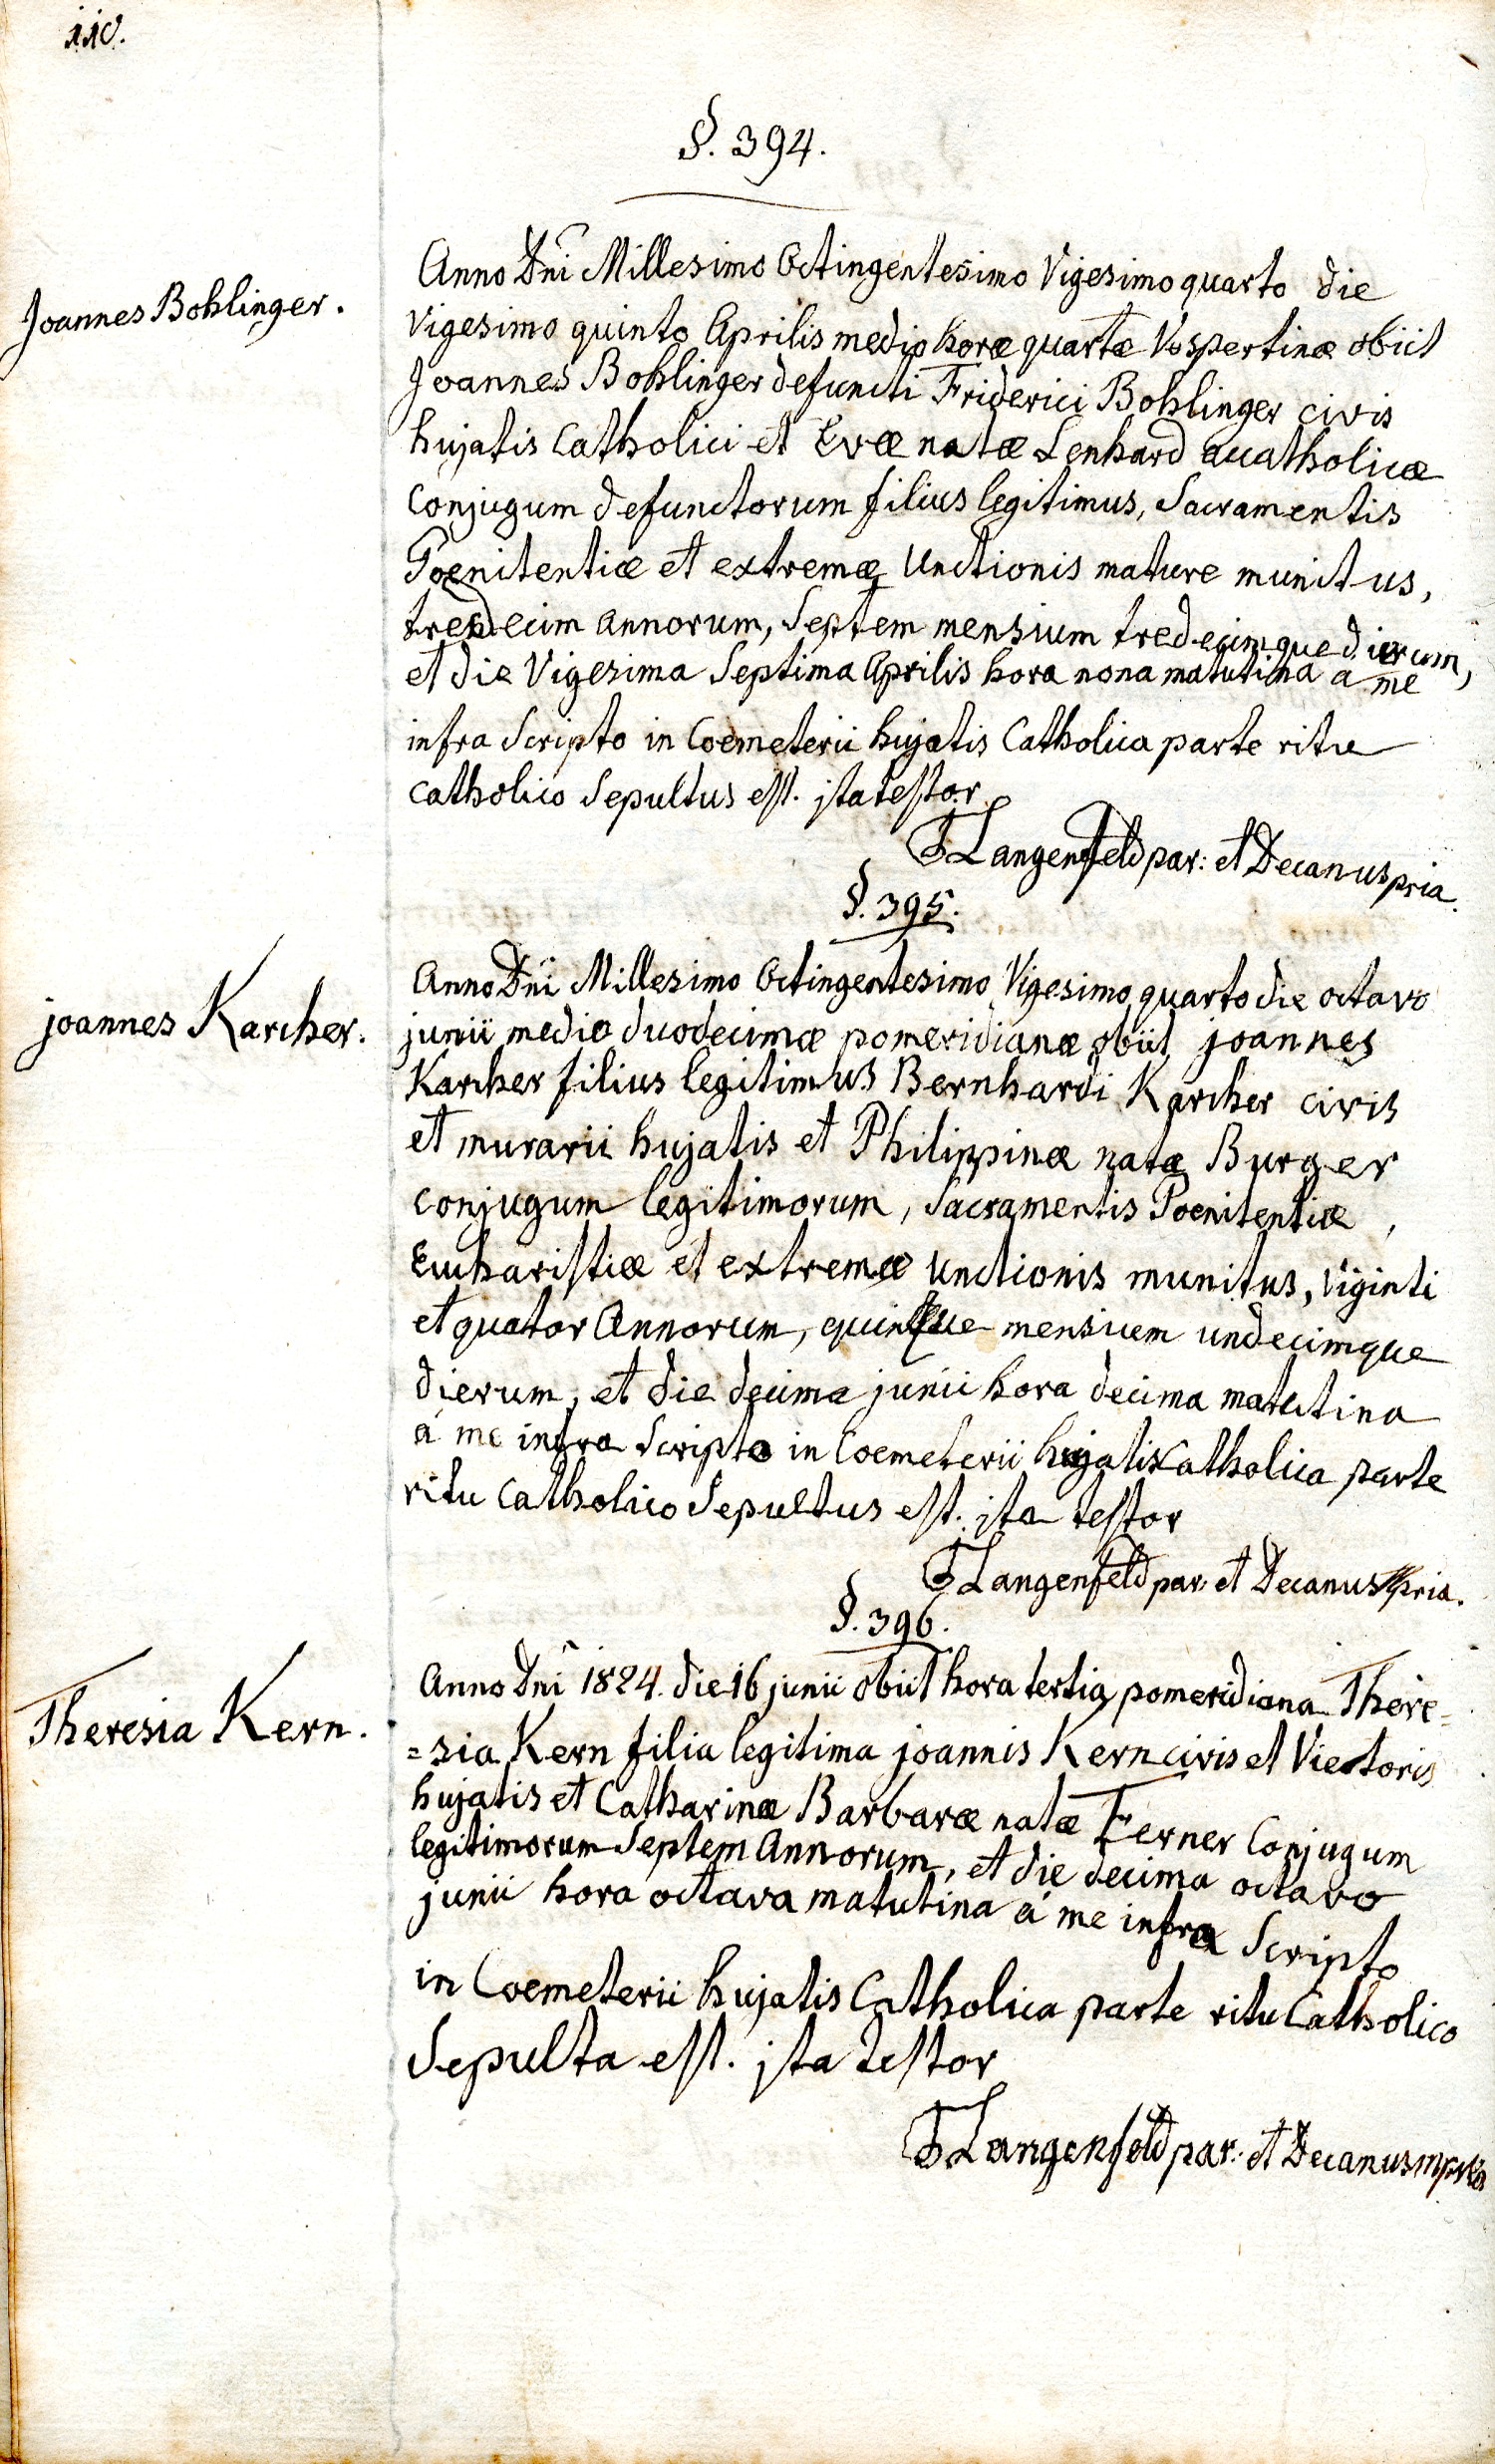 110.
§. 394.
Joannes Bohlinger.
Anno Dñi Millesimo Octingentesimo Vigesimo quarto die
Vigesimo quinto Aprilis medio horæ quartæ Vespertinæ obiit
Joannes Bohlinger defuncti Friderici Bohlinger civis
hujatis Catholici et Evæ natæ Lenhard acatholicæ
Conjugum defunctorum filius legitimus, Sacramentis
Poenitentiæ et extremæ Unctionis mature munitus,
tredecim Annorum, Septem mensium tredecimque dierum,
et die Vigesima Septima Aprilis hora nona matutina a me
infra Scripto in Coemeterii hujatis Catholica parte ritu
catholico Sepultus est. ita testor
Langenfeld par: et Decanus pria.
§. 395.
joannes Karcher.
Anno Dñi Millesimo Octingentesimo Vigesimo quarto die octavo
junii medio duodecimæ pomeridianæ obiit joannes
Karcher filius legitimus Bernhardi Karcher civis
et murarii hujatis et Philippinæ natæ Burger
conjugum legitimorum, Sacramentis Poenitentiæ,
Eucharistiæ et extremæ Unctionis munitus, viginti
et quator Annorum, quinque mensium undecimque
dierum, et die decima junii hora decima matutina
á me infra Scripto in Coemeterii hujatis Catholica parte
ritu Catholico Sepultus est. ita testor
Langenfeld par: et Decanus pria.
§. 396.
Theresia Kern.
Anno Dñi 1824. die 16 junii obiit hora tertia pomeridiana There=
=sia Kern filia legitima joannis Kern civis et Viectoris
hujatis et Catharinæ Barbaræ natæ Ferner Conjugum
legitimorum Septem Annorum, et die decima octavo
junii hora octava matutina á me infra Scripto
in Coemeterii hujatis Catholica parte ritu Catholico
Sepulta est. ita testor
Langenfeld par: et Decanus mpria